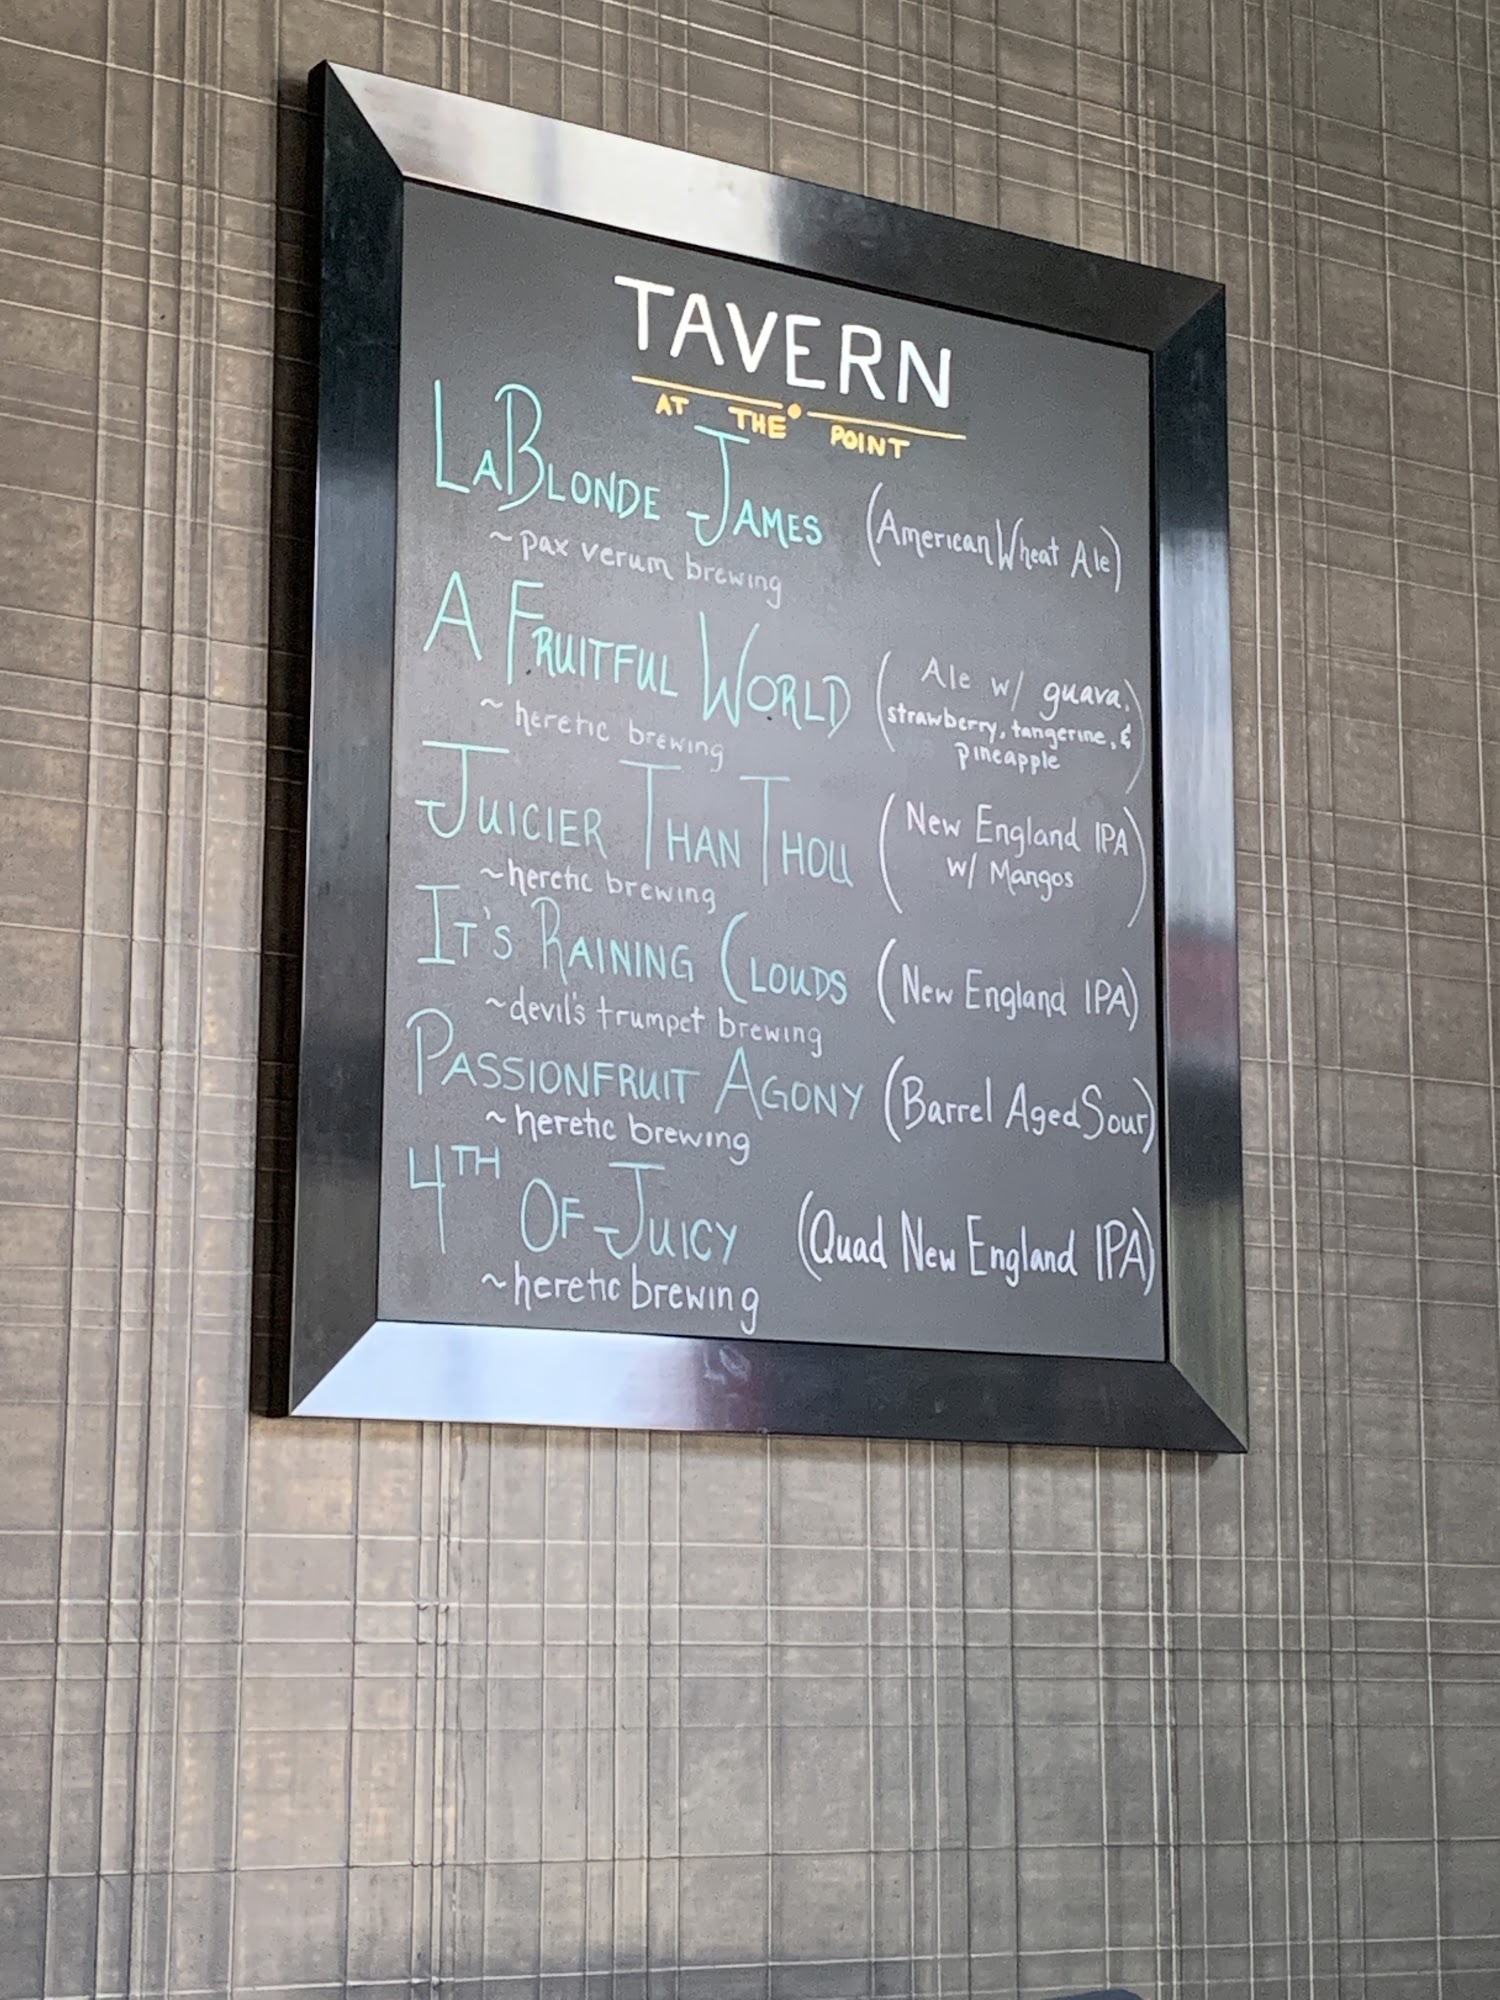 TAVERN
AT THE POINT
LABLONDE JAMES (American Wheat Ale)
~pax verum brewing
A FRUITFUL WORLD (Ale w/ guava,
strawberry, tangerine, &
pineapple)
~ heretic brewing
JUICIER THAN THOU (New England IPA
w/ Mangos)
~heretic brewing
IT'S RAINING CLOUDS (New England IPA)
~devil's trumpet brewing
PASSIONFRUIT AGONY (Barrel Aged Sour)
~ heretic brewing
4TH OF JUICY (Quad New England IPA)
~heretic brewing